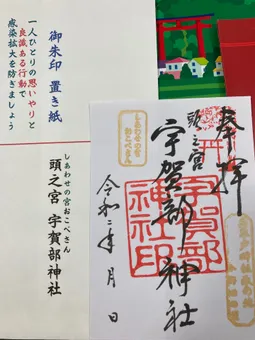 御朱印 置き紙
一人ひとりの思いやりと
良識ある行動で
感染拡大を防ぎましょう
しあわせの宮おこべさん
頭之宮 宇賀部神社
奉拝
頭之宮
宇賀部神社
令和二年 月 日
宇賀部
神社印
しあわせの宮
おこべさん